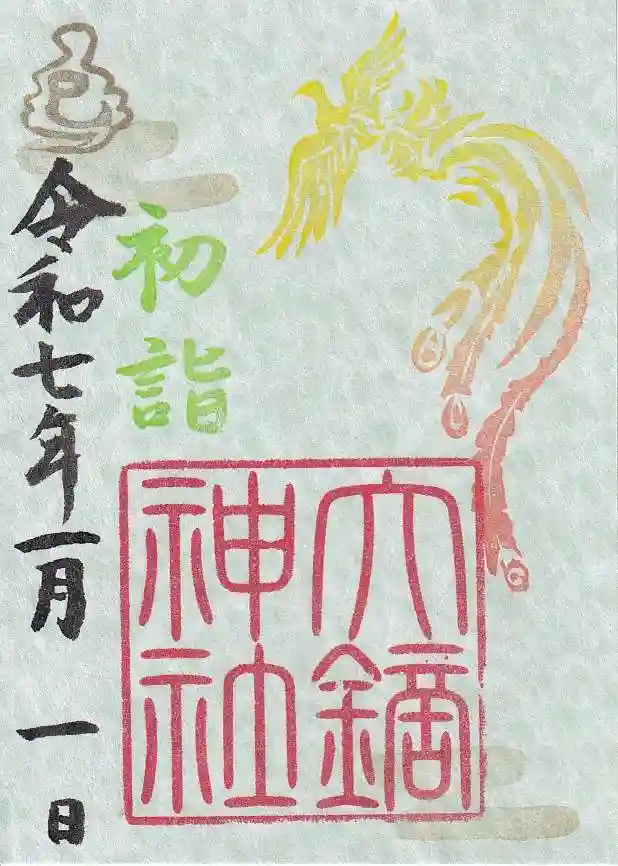 大鏑
神社
初詣
巳
令和七年一月一日